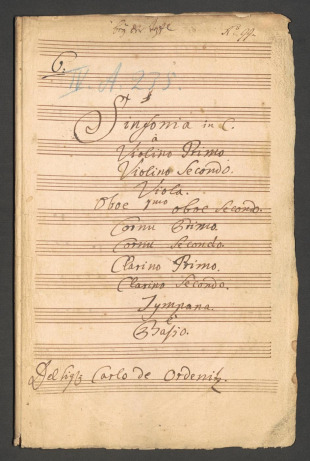 No. 99.
6.
IV. A. 278.
Sinfonia in C.
à
Violino Primo
Violino Secondo.
Viola.
Oboe 1mo oboe Secondo.
Cornu Primo.
Cornu Secondo.
Clarino Primo.
Clarino Secondo.
Tympana.
è
Basso.
Carlo de Ordenitz.